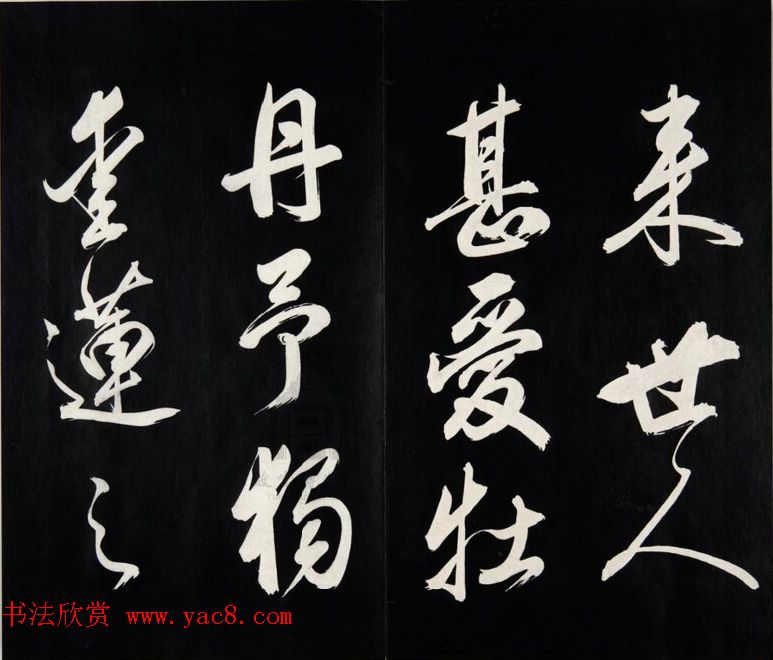 来世人
甚愛牡
丹予獨
愛蓮之
书法欣赏 www.yac8.com